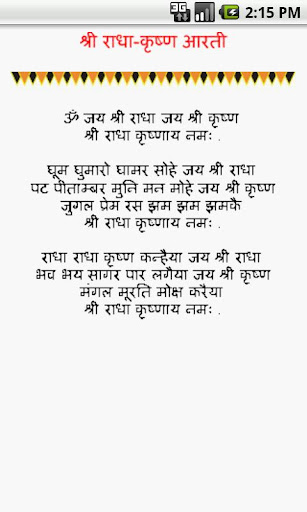 3G 2:15 PM
श्री राधा-कृष्ण आरती
ॐ जय श्री राधा जय श्री कृष्ण
श्री राधा कृष्णाय नमः .
घूम घुमारो घामर सोहे जय श्री राधा
पट पीताम्बर मुनि मन मोहे जय श्री कृष्ण
जुगल प्रेम रस झम झम झमकै
श्री राधा कृष्णाय नमः .
राधा राधा कृष्ण कन्हैया जय श्री राधा
भव भय सागर पार लगैया जय श्री कृष्ण
मंगल मूरति मोक्ष करैया
श्री राधा कृष्णाय नमः .